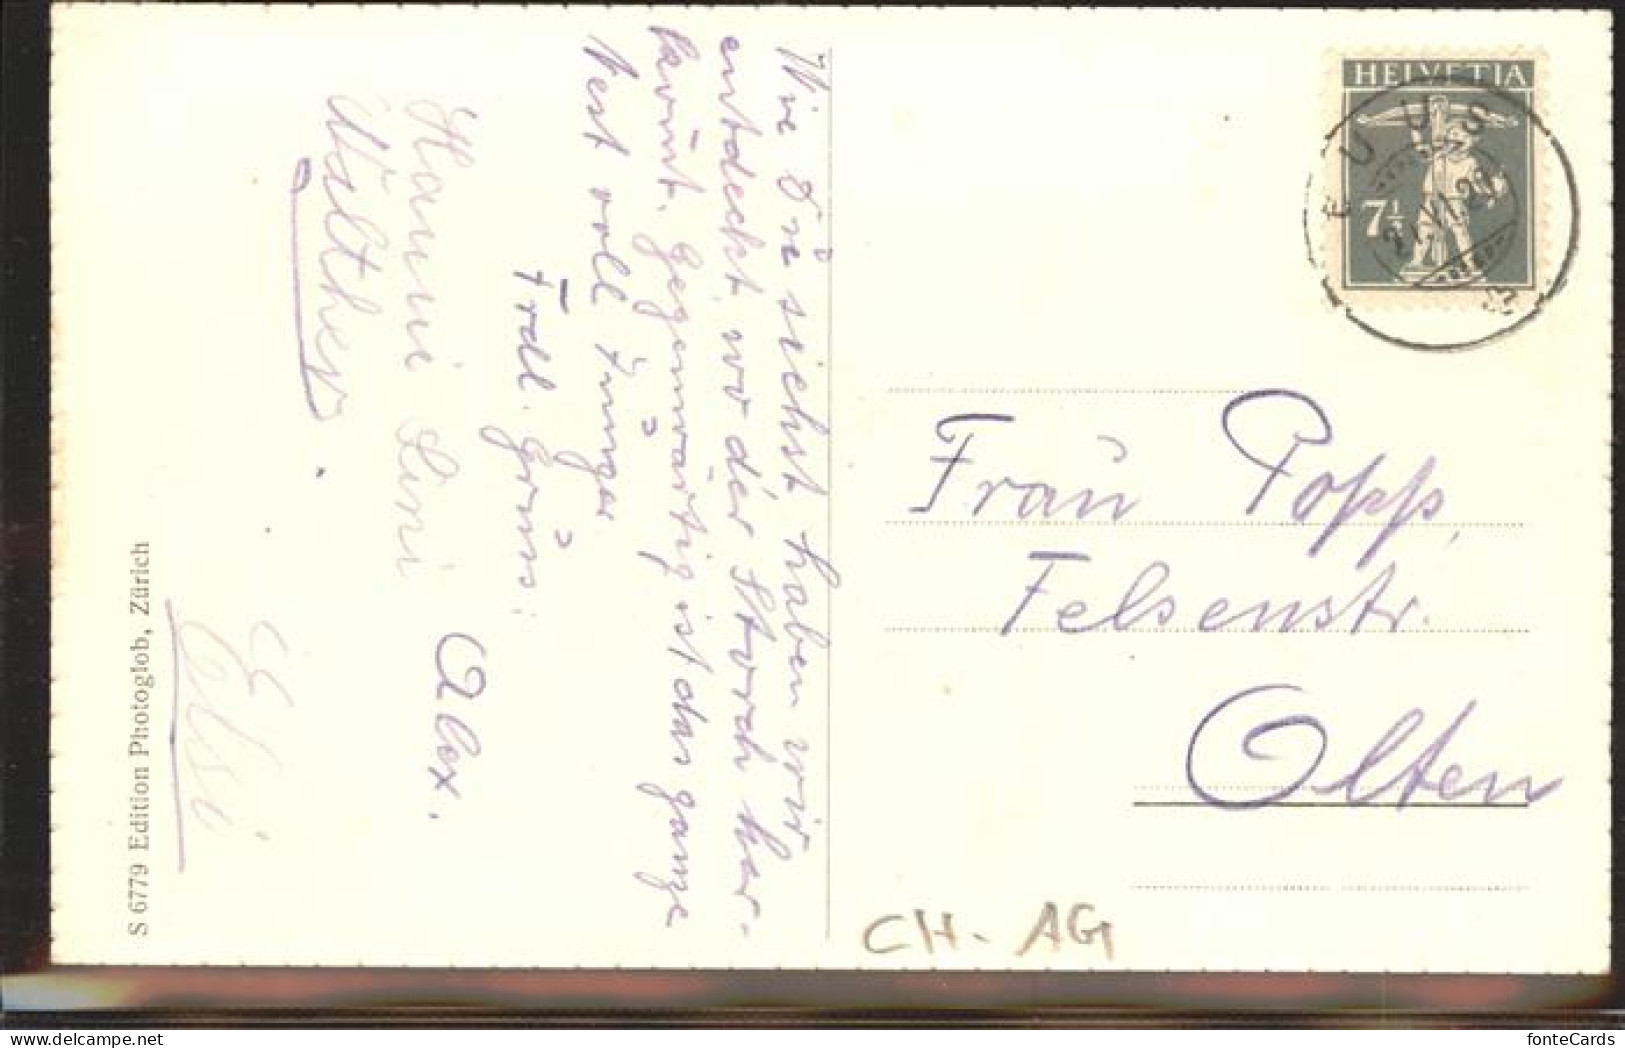 Wie Du siehst haben wir
entdeckt wo der Storch her-
kommt. Gegenwärtig ist das ganze
Nest voll Junger
Frdl. Gruss:
Alex.
Hanni Leni
Walther
Elsi
S 6779 Edition Photoglob, Zürich
HELVETIA
7½
Frau Popp,
Felsenstr.
Olten
CH-AG
fonteCards